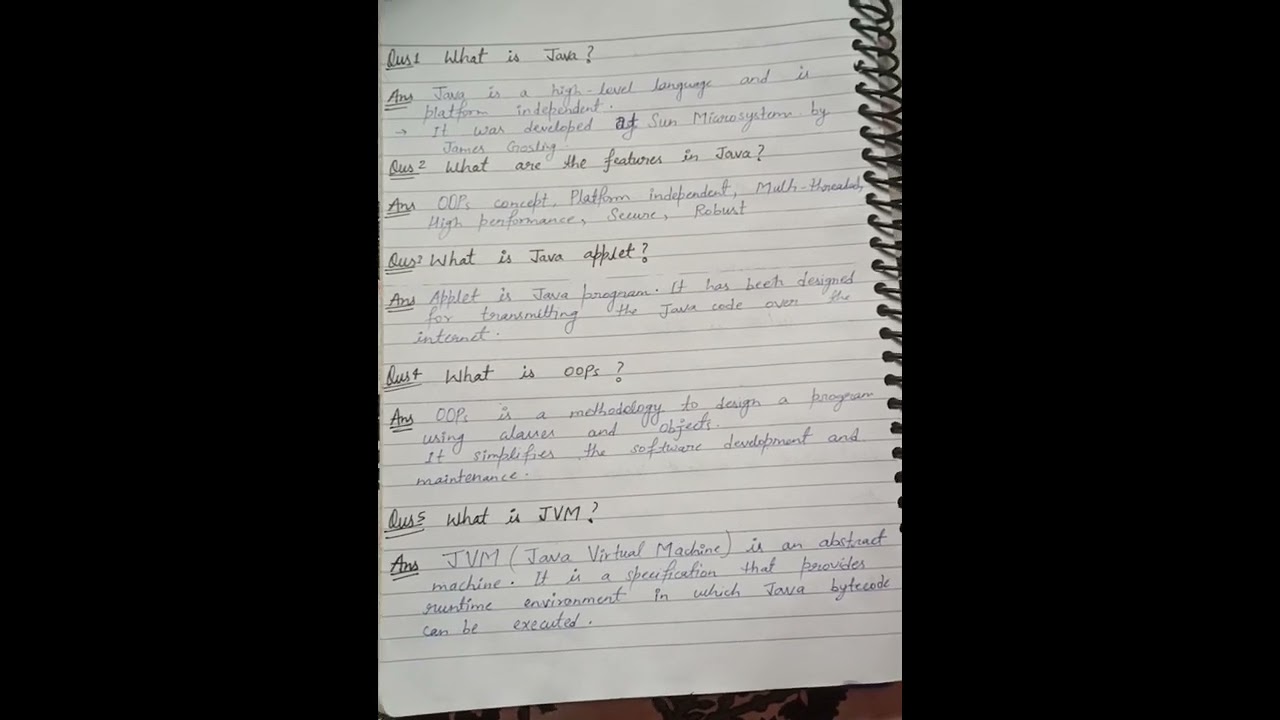 Qus 1 What is Java?
Ans Java is a high-level language and is
platform independent.
→ It was developed at Sun Microsystem by
James Gosling.
Qus 2 What are the features in Java?
Ans OOPs concept, Platform independent, Multi-threaded,
High performance, Secure, Robust
Qus 3 What is Java applet?
Ans Applet is Java program. It has been designed
for transmitting the Java code over the
internet.
Qus 4 What is OOPs?
Ans OOPs is a methodology to design a program
using classes and objects.
It simplifies the software development and
maintenance.
Qus 5 What is JVM?
Ans JVM (Java Virtual Machine) is an abstract
machine. It is a specification that provides
runtime environment in which Java bytecode
can be executed.